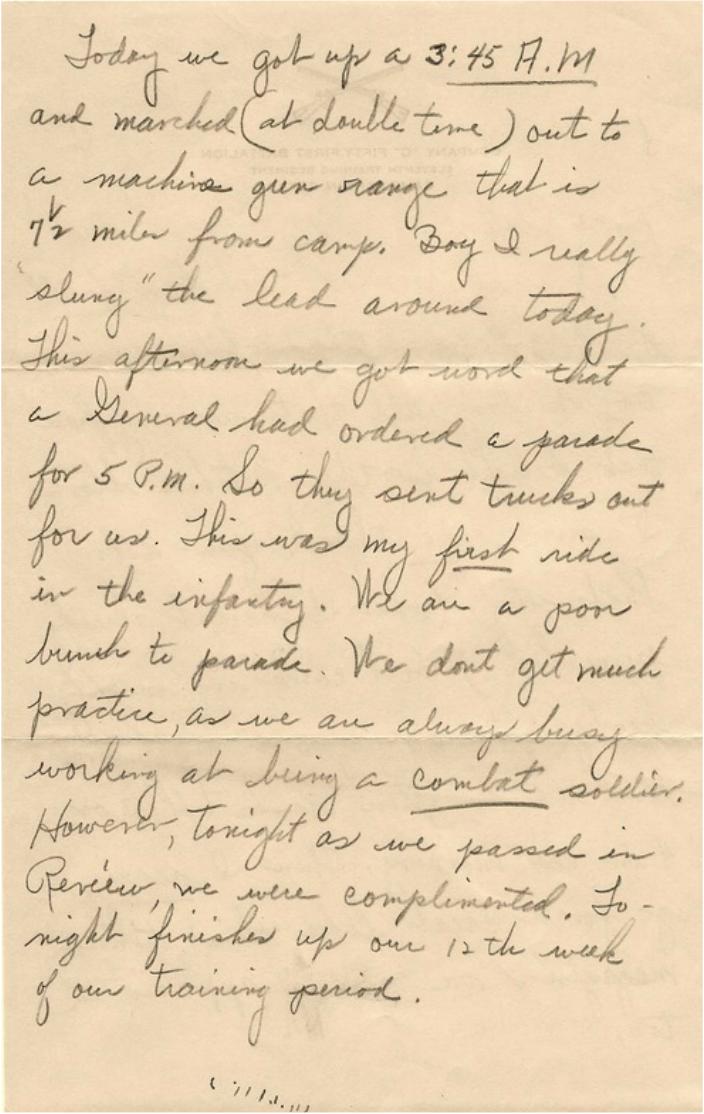 Today we got up a 3:45 A.M
and marched (at double time) out to
a machine gun range that is
7 1/2 miles from camp. Boy I really
"slung" the lead around today.
This afternoon we got word that
a General had ordered a parade
for 5 P.M. So they sent trucks out
for us. This was my first ride
in the infantry. We are a poor
bunch to parade. We dont get much
practice, as we are always busy
working at being a combat soldier.
However, tonight as we passed in
Review, we were complimented. To-
night finishes up our 12th week
of our training period.